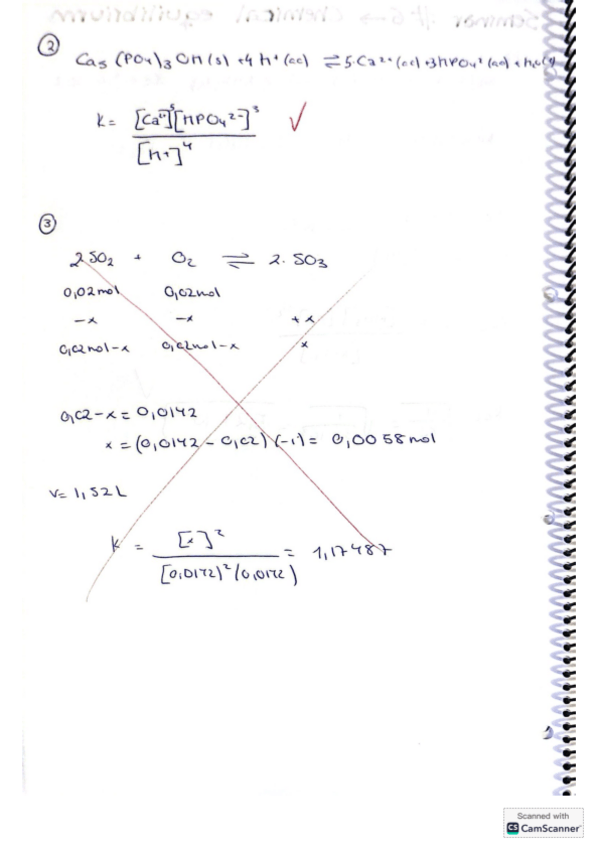 Seminar #6 → Chemical equilibrium
②
Ca5 (PO4)3 OH (s) + 4 H+ (ac) ⇌ 5·Ca2+ (ac) + 3HPO4 2- (ac) + H2O (l)
K = [Ca2+]5 [HPO42-]3 ✓
[H+]4
③
2 SO2 + O2 ⇌ 2. SO3
0,02mol 0,02mol
-x -x +x
0,02mol-x 0,02mol-x x
0,02-x = 0,0142
x = (0,0142 - 0,02) (-1) = 0,0058mol
V= 1,52L
K = [x]2 = 1,17487
[0,0142]2 (0,0142)
Scanned with
CS CamScanner